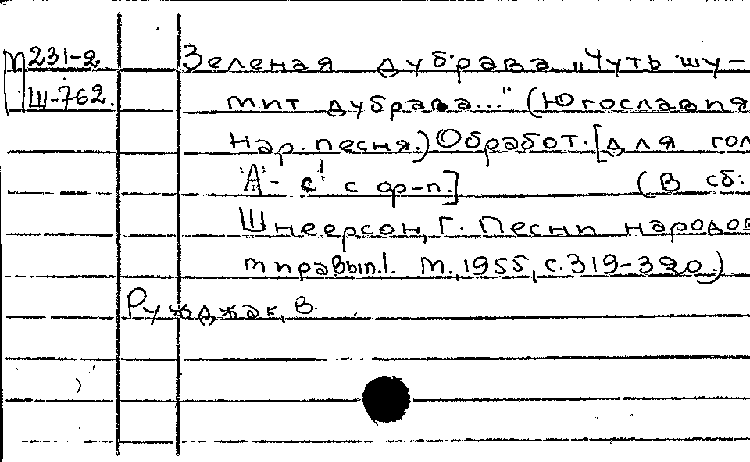 П 231-2
Ш-762.
Зеленая дубрава „Чуть шу-
мит дубрава..." (Югославия
Нар. песня.) Обработ. [для гол
"А"- с' с ф-п.] (В сб:
Шнеерсон, Г. Песни народов
мира Вып.1. М., 1955, с. 319-320.)
Ружджак, В.